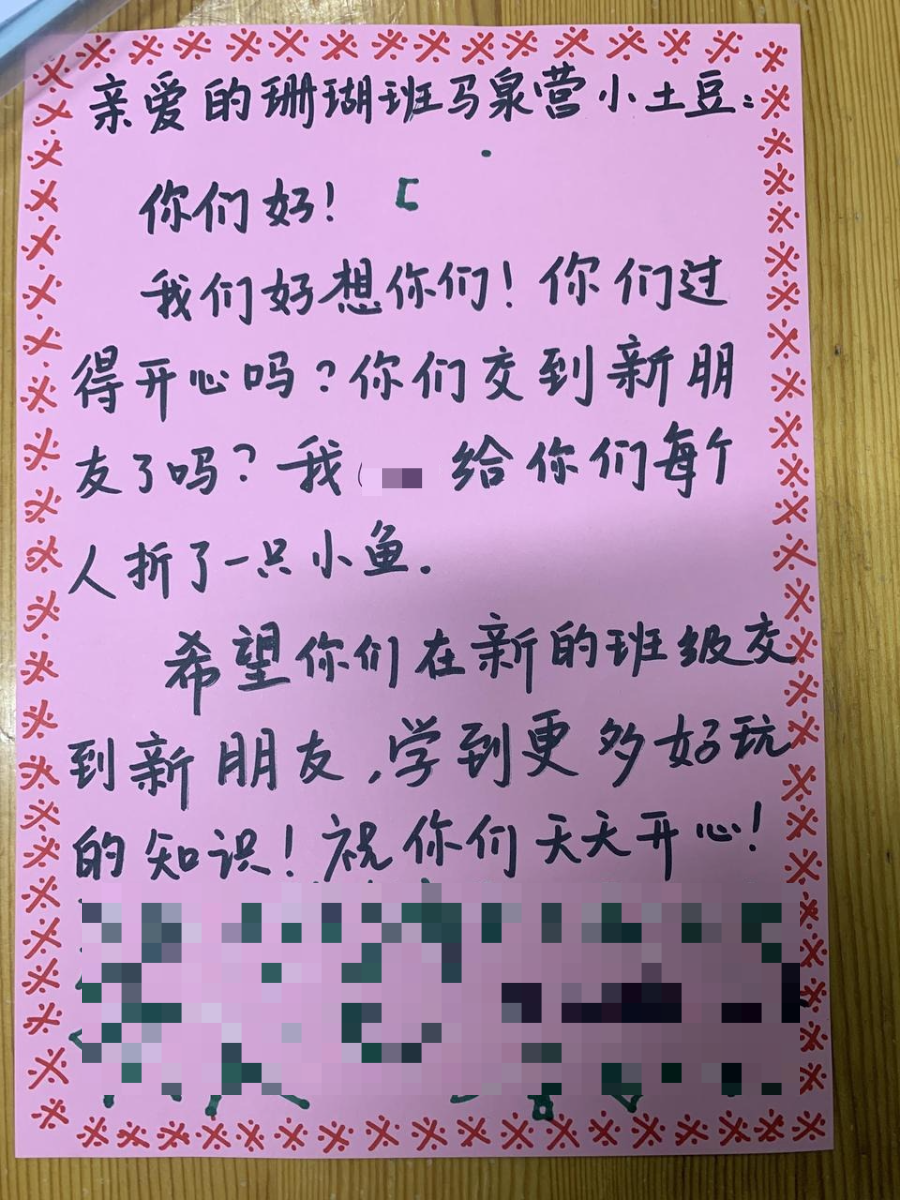 亲爱的珊瑚班马泉营小土豆：
你们好！
我们好想你们！你们过
得开心吗？你们交到新朋
友了吗？我（ 给你们每个
人折了一只小鱼.
希望你们在新的班级交
到新朋友，学到更多好玩
的知识！祝你们天天开心！